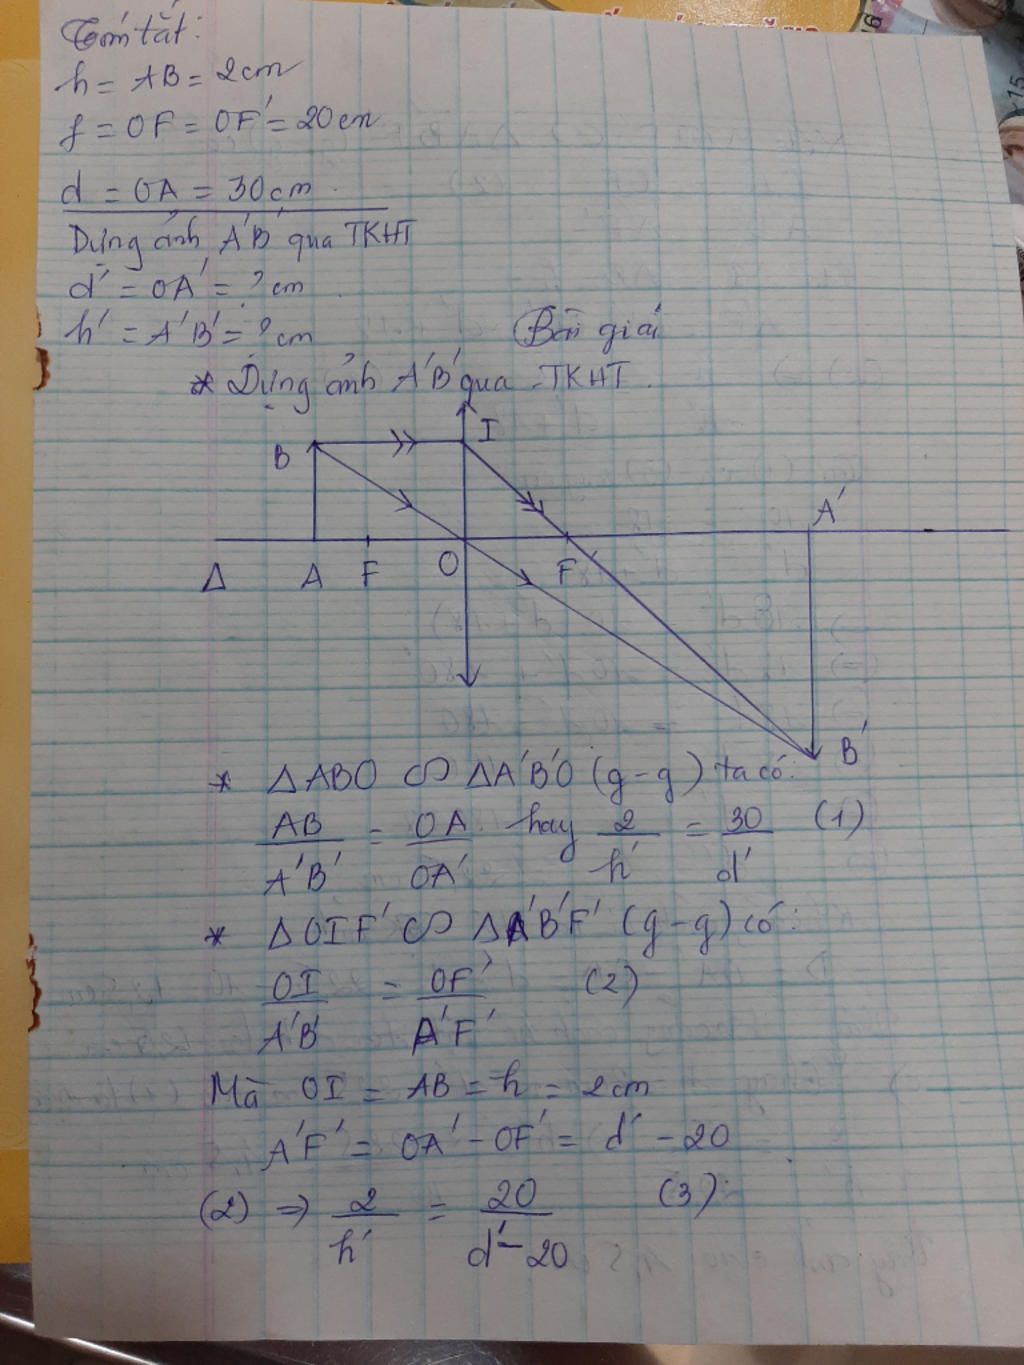 Tóm tắt:
h = AB = 2cm
f = OF = OF' = 20cm
d = OA = 30cm.
Dựng ảnh A'B' qua TKHT
d' = OA' = ? cm
h' = A'B' = ? cm
Bài giải
* Dựng ảnh A'B' qua TKHT.
B I A'
Δ A F O F'
B'
* ΔABO ∽ ΔA'B'O (g-g) ta có:
AB/A'B' = OA/OA' hay 2/h' = 30/d' (1)
* ΔOIF' ∽ ΔA'B'F' (g-g) có:
OI/A'B' = OF'/A'F' (2)
Mà OI = AB = h = 2cm
A'F' = OA' - OF' = d' - 20
(2) => 2/h' = 20/d'-20 (3)